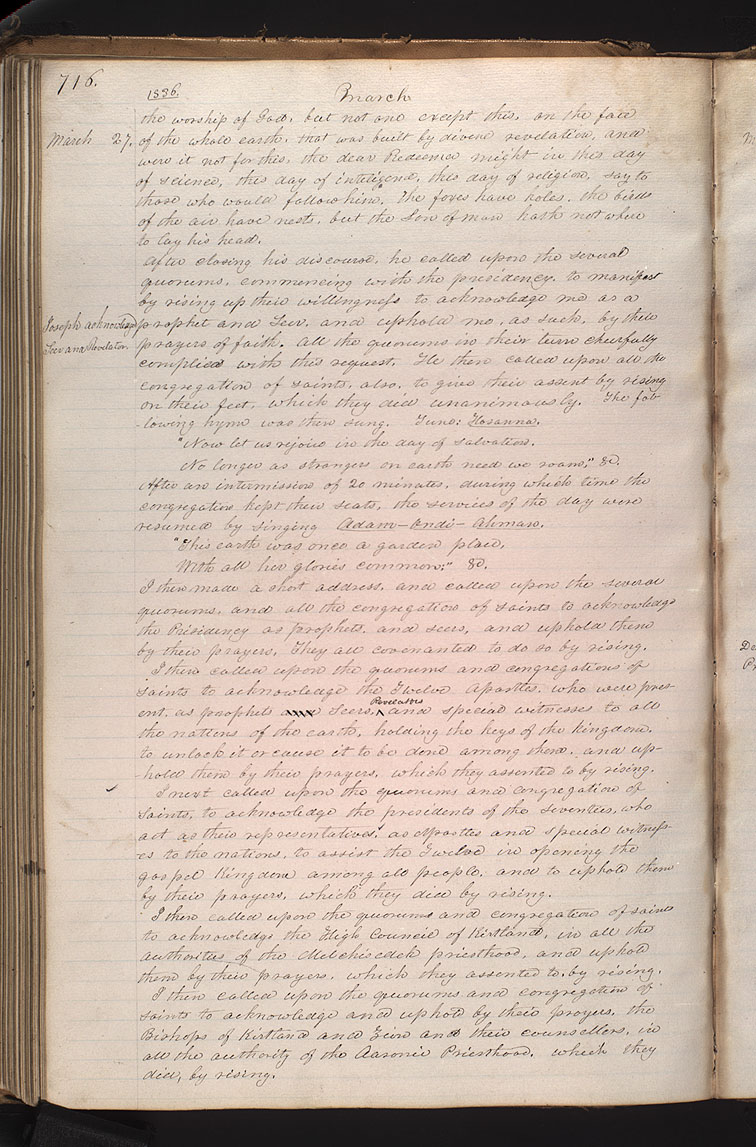 716.
1836.
March
the worship of God, but not one except this, on the face
March 27.
of the whole earth, that was built by divine revelation, and
were it not for this, the dear Redeemer might in this day
of science, this day of inteligence, this day of religion, say to
those who would follow him, "The foxes have holes, the birds
of the air have nests, but the Son of man hath not where
to lay his head.
After closing his discourse, he called upon the several
quorums, commencing with the presidency, to manifest
by rising up their willingness to acknowledge me as a
Joseph acknowledged
prophet and Seer, and uphold me, as such, by their
Seer and Revelator.
prayers of faith. All the quorums in their turn cheerfully
complied with this request. He then called upon all the
congregation of Saints, also, to give their assent by rising
on their feet, which they did unanimously. The fol-
-lowing hymn was then sung. Tune: Hosanna.
"Now let us rejoice in the day of salvation.
No longer as strangers on earth need we roam," &c.
After an intermission of 20 minutes, during which time the
congregation kept their seats, the services of the day were
resumed by singing Adam-Ondi-Ahman.
"This earth was once a garden place,
With all her glories common;" &c.
I then made a short address, and called upon the several
quorums, and all the congregation of saints to acknowledge
the Presidency as prophets, and seers, and uphold them
by their prayers, They all covenanted to do so by rising.
I then called upon the quorums and congregations of
saints to acknowledge the Twelve Apostles, who were pres-
Revelators
ent, as prophets Seers, ^ and special witnesses to all
the nations of the earth, holding the keys of the kingdom,
to unlock it or cause it to be done among them, and up-
-hold them by their prayers, which they assented to by rising.
I next called upon the quorums and congregation of
Saints, to acknowledge the presidents of the seventies, who
act as their representatives, as Apostles and special witness-
es to the nations, to assist the Twelve in opening the
gospel kingdom among all people, and to uphold them
by their prayers, which they did by rising.
I then called upon the quorums and congregation of saints
to acknowledge the High Council of Kirtland, in all the
authorities of the Melchisedek priesthood, and uphold
them by their prayers, which they assented to, by rising.
I then called upon the quorums and congregation of
saints to acknowledge and uphold by their prayers, the
Bishops of Kirtland and Zion and their counsellors, in
all the authority of the Aaronic Priesthood, which they
did, by rising.